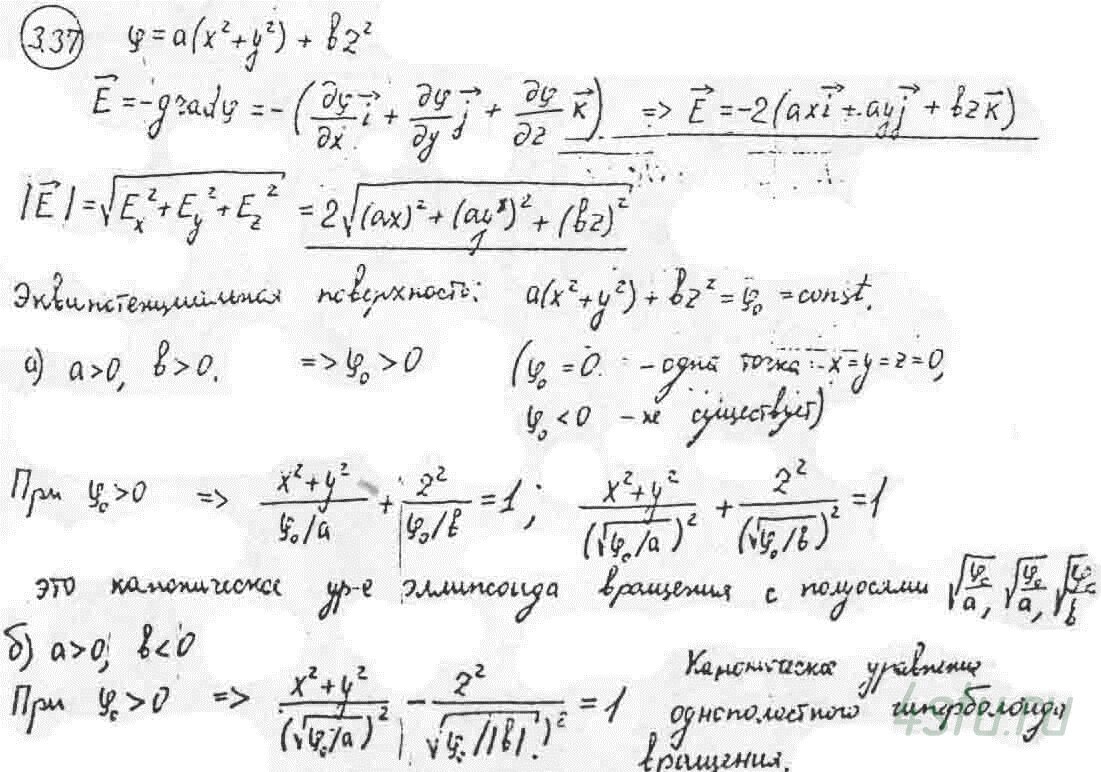 3.37 φ = a(x² + y²) + bz²
E⃗ = -grad φ = -(∂φ/∂x i⃗ + ∂φ/∂y j⃗ + ∂φ/∂z k⃗) => E⃗ = -2(axi⃗ + ayj⃗ + bzk⃗)
|E⃗| = √(E_x² + E_y² + E_z²) = 2√((ax)² + (ay)² + (bz)²)
Эквипотенциальная поверхность: a(x² + y²) + bz² = φ₀ = const.
а) a>0, b>0. => φ₀ > 0 (φ₀ = 0 - одна точка - x = y = z = 0,
φ₀ < 0 - не существует)
При φ₀ > 0 => (x² + y²)/(φ₀/a) + z²/(φ₀/b) = 1; (x² + y²)/(√(φ₀/a))² + z²/(√(φ₀/b))² = 1
это каноническое ур-е эллипсоида вращения с полуосями √(φ₀/a), √(φ₀/a), √(φ₀/b)
б) a>0, b<0
При φ₀ > 0 => (x² + y²)/(√(φ₀/a))² - z²/(√(φ₀/|b|))² = 1 Каноническое уравнение
однополостного гиперболоида
вращения.
4stu.ru